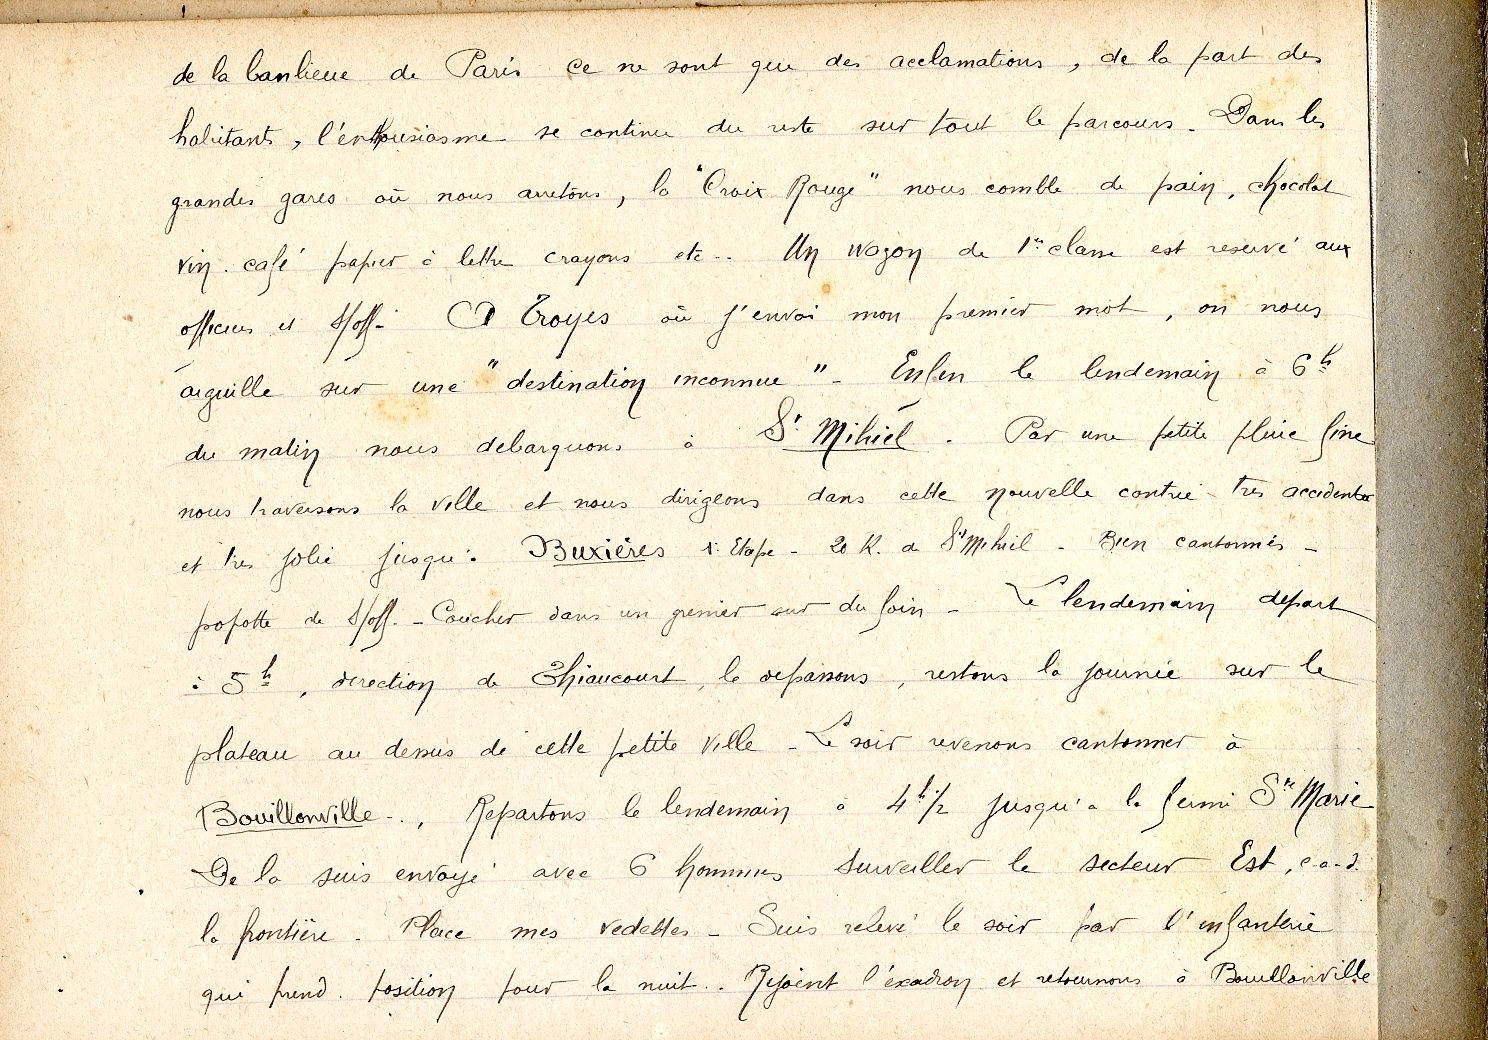 de la banlieue de Paris ce ne sont que des acclamations, de la part des
habitants, l'enthousiasme se continu du reste sur tout le parcours. Dans les
grandes gares où nous arretons, la "Croix Rouge" nous comble de pain, chocolat
vin. café papier à lettre crayons etc.. Un wagon de 1re classe est reservé aux
officiers et S/off.- A Troyes où j'envoi mon premier mot, on nous
aiguille sur une "destination inconnue" - Enfin le lendemain à 6h
du matin nous debarquons à St Mihiel. Par une petite pluie fine
nous traversons la ville et nous dirigeons dans cette nouvelle contrée très accidentée
et très jolie jusqu'à Buxières 1e Etape - 20 K. de St Mihiel - Bien cantonnés -
popotte de S/off. - Coucher dans un grenier sur du foin - Le lendemain départ
à 5h, direction de Thiaucourt, le depassons, restons la journée sur le
plateau au dessus de cette petite ville - Le soir revenons cantonner à
Bouillonville -., Repartons le lendemain à 4h1/2 jusqu'à la ferme Ste Marie
De la suis envoyé avec 6 hommes surveiller le secteur Est, c-a-d.
la frontière. Place mes vedettes - Suis relevé le soir par l'infanterie
qui prend. position pour la nuit.. Rejoint l'éxadron et retournons à Bouillonville